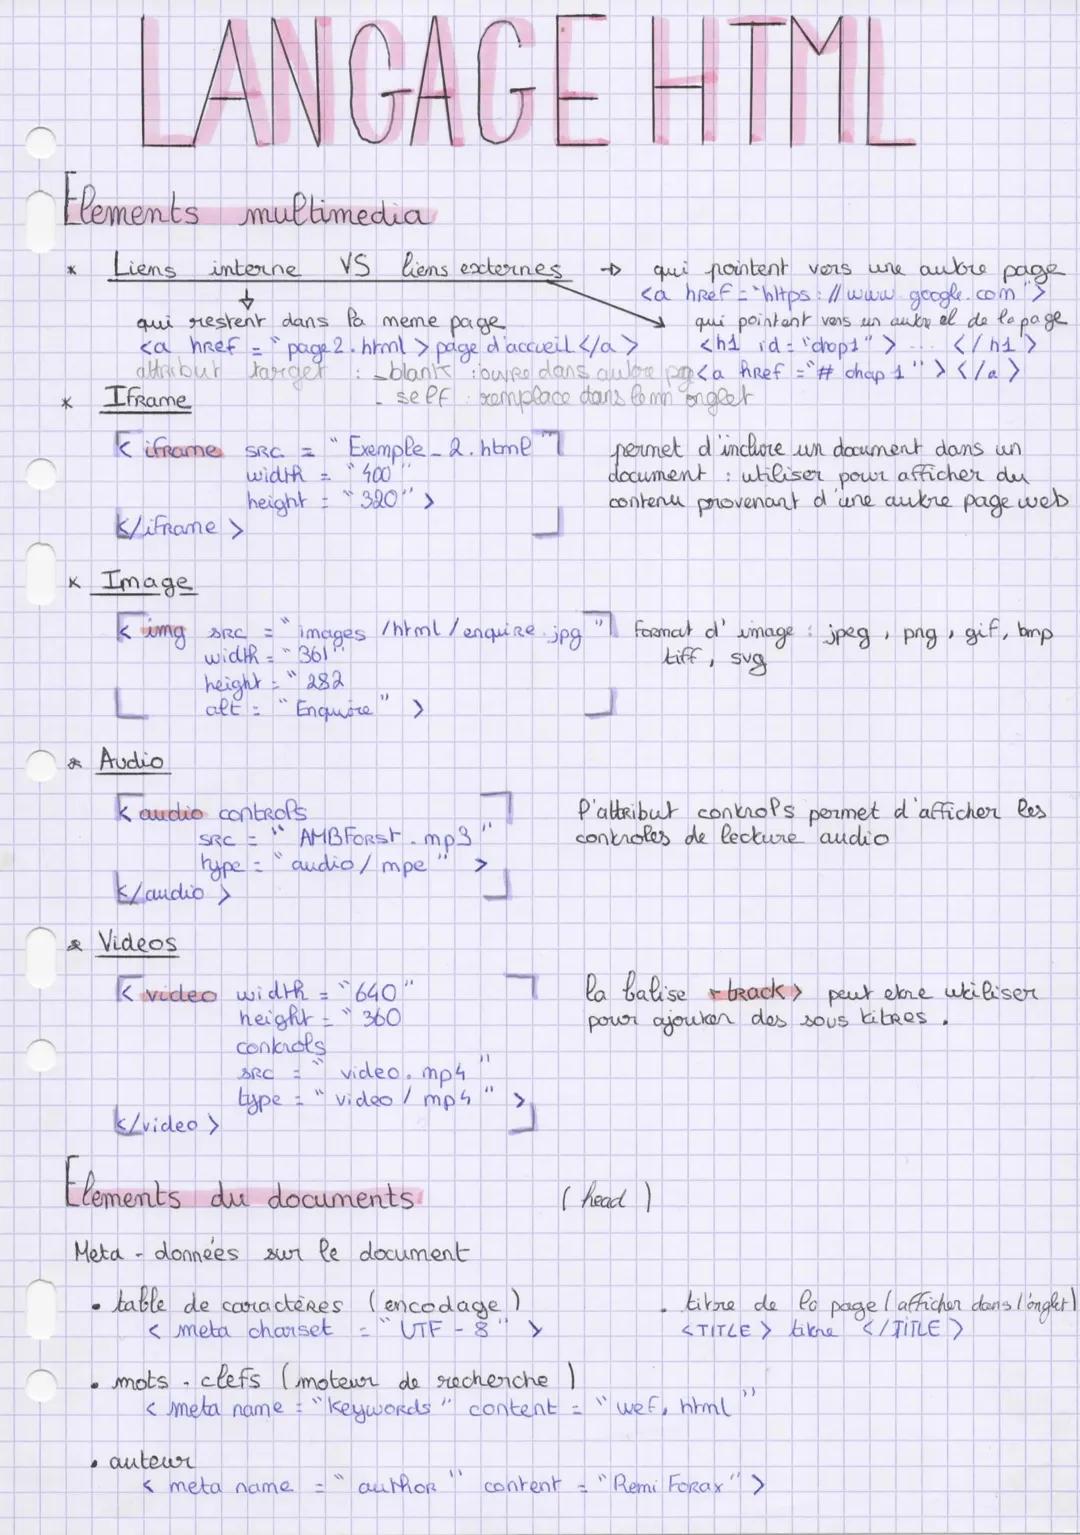 LANGAGE HTML
Elements multimedia
* Liens interne VS liens externes → qui pointent vers une autre page
<a href="https://www.google.com">
qui restent dans la meme page
qui pointent vers un autre el de la page
<a href = "page2.html > page d'accueil </a>
<h1 id="chap1" > ... </h1>
attribut target : _blank : ouvre dans autre pg
<a href ="# chap1" > </a>
- self : remplace dans le mm onglet
* Iframe
< iframe src = "Exemple_2.html"
width = "400"
height = "320" >
</iframe >
permet d'inclure un document dans un
document : utiliser pour afficher du
contenu provenant d'une autre page web
* Image
< img src = "images /html/enquire.jpg"
width = "361"
height = "282
alt = "Enquire" >
format d'image : jpeg, png, gif, bmp
tiff, svg
* Audio
< audio controls
src = "AMBForst.mp3"
type = "audio/mpe" >
</audio >
l'attribut controls permet d'afficher les
controles de lecture audio
* Videos
< video width = "640"
height = "360
controls
src = "video.mp4"
type = "video/mp4" >
</video >
la balise <track> peut etre utiliser
pour ajouter des sous titres.
Elements du documents (head)
Meta - données sur le document
• table de caractères (encodage)
< meta charset = "UTF-8" >
• titre de la page (afficher dans l'onglet)
<TITLE> titre </TITLE>
• mots - clefs (moteur de recherche)
< meta name = "keywords" content = "wef, html"
• auteur
< meta name = "author" content = "Remi Forax" >